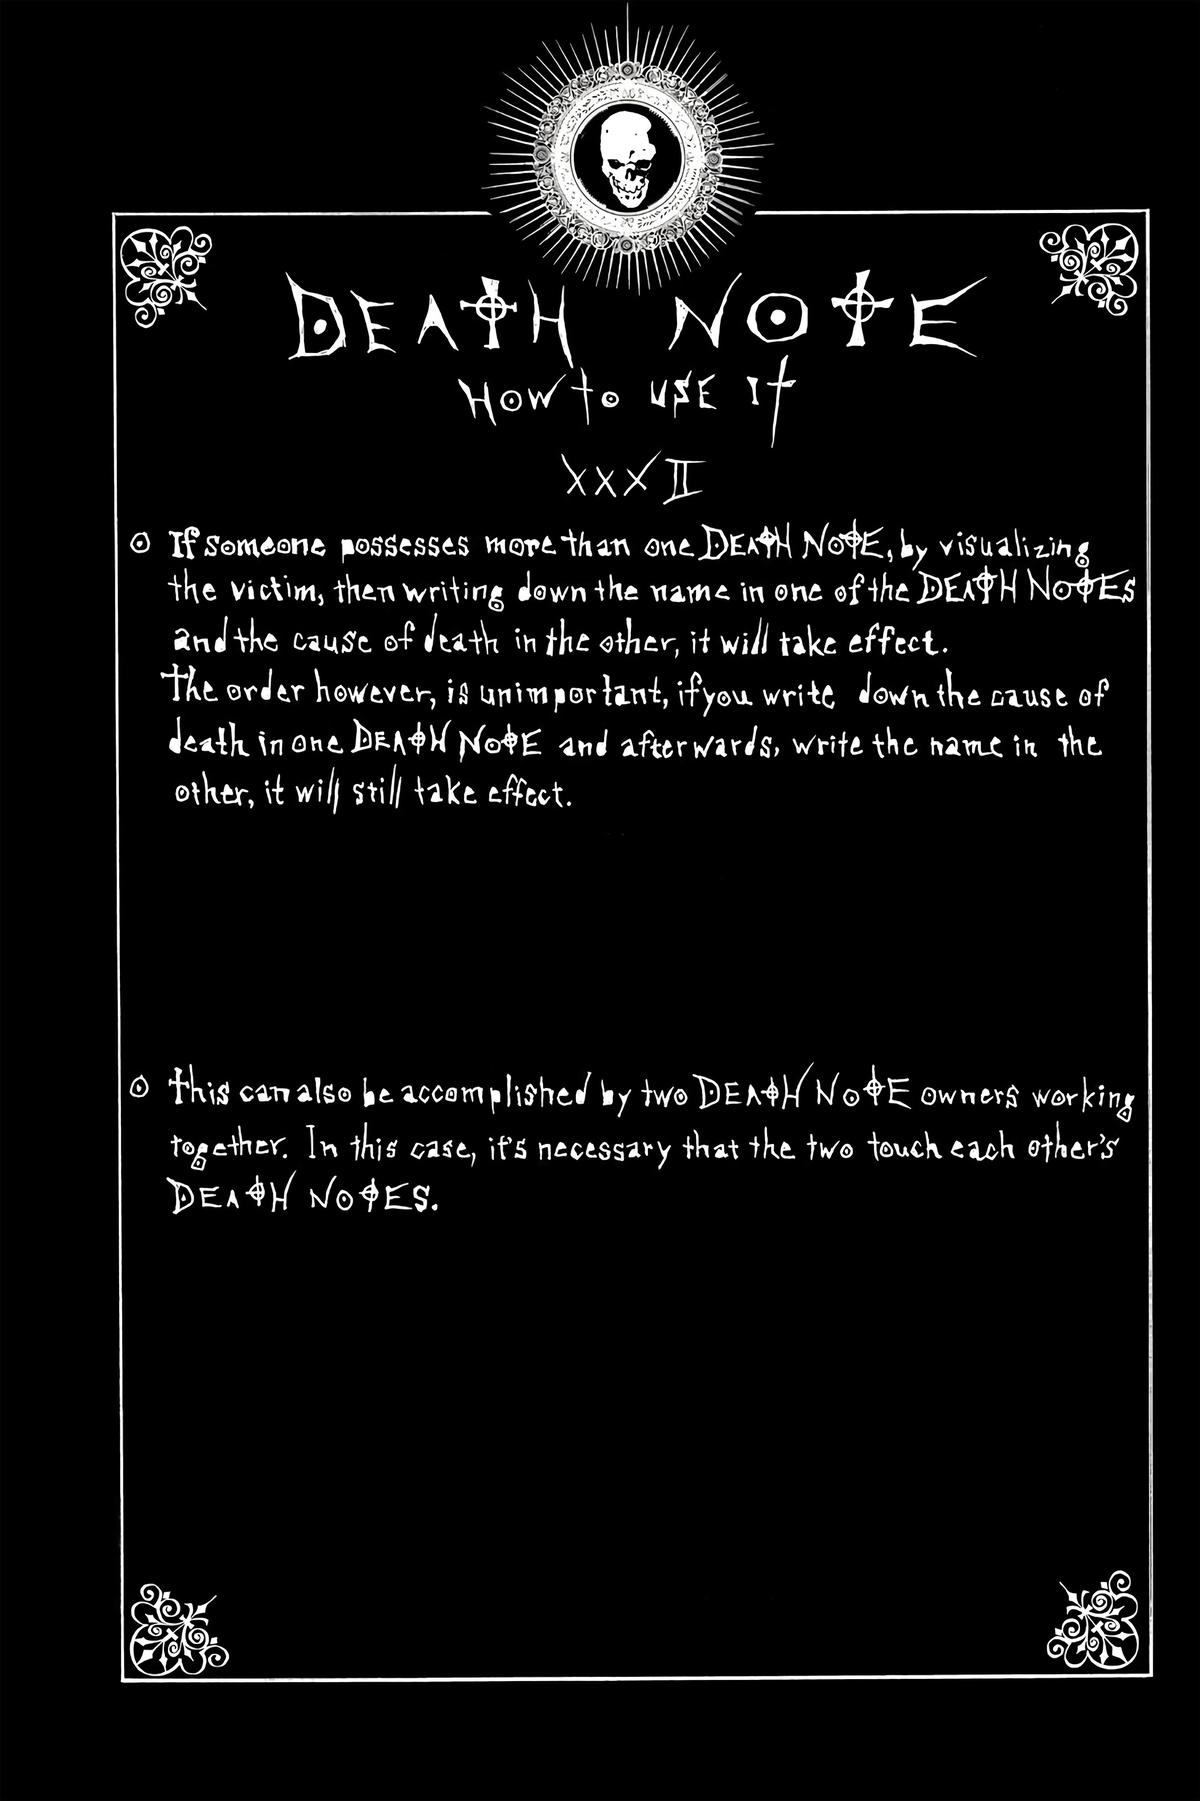 DEATH NOTE
HOW to USE It
XXXII
If someone possesses more than one DEATH NOTE, by visualizing
the victim, then writing down the name in one of the DEATH NOTES
and the cause of death in the other, it will take effect.
The order however, is unimportant, if you write down the cause of
death in one DEATH NOTE and afterwards, write the name in the
other, it will still take effect.
This can also be accomplished by two DEATH NOTE owners working
together. In this case, it's necessary that the two touch each other's
DEATH NOTES.